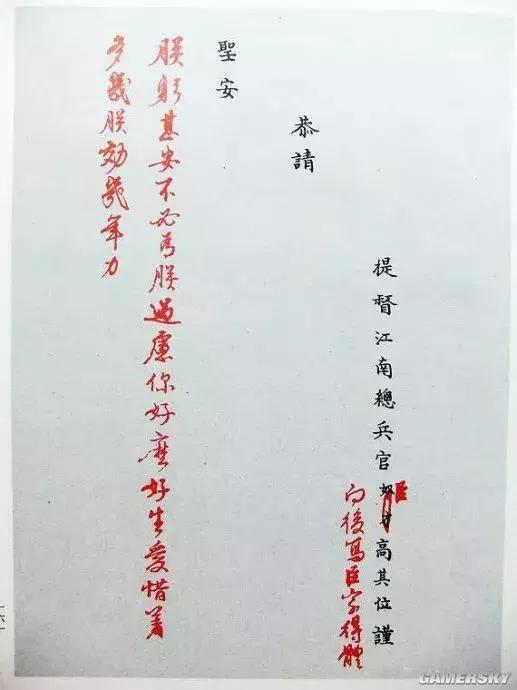 提督江南總兵官奴才高其位謹
臣
向後寫臣字得體
恭請
聖安
朕躬甚安不必為朕過慮你好麼好生愛惜着
多與朕効幾年力
GAMERSKY